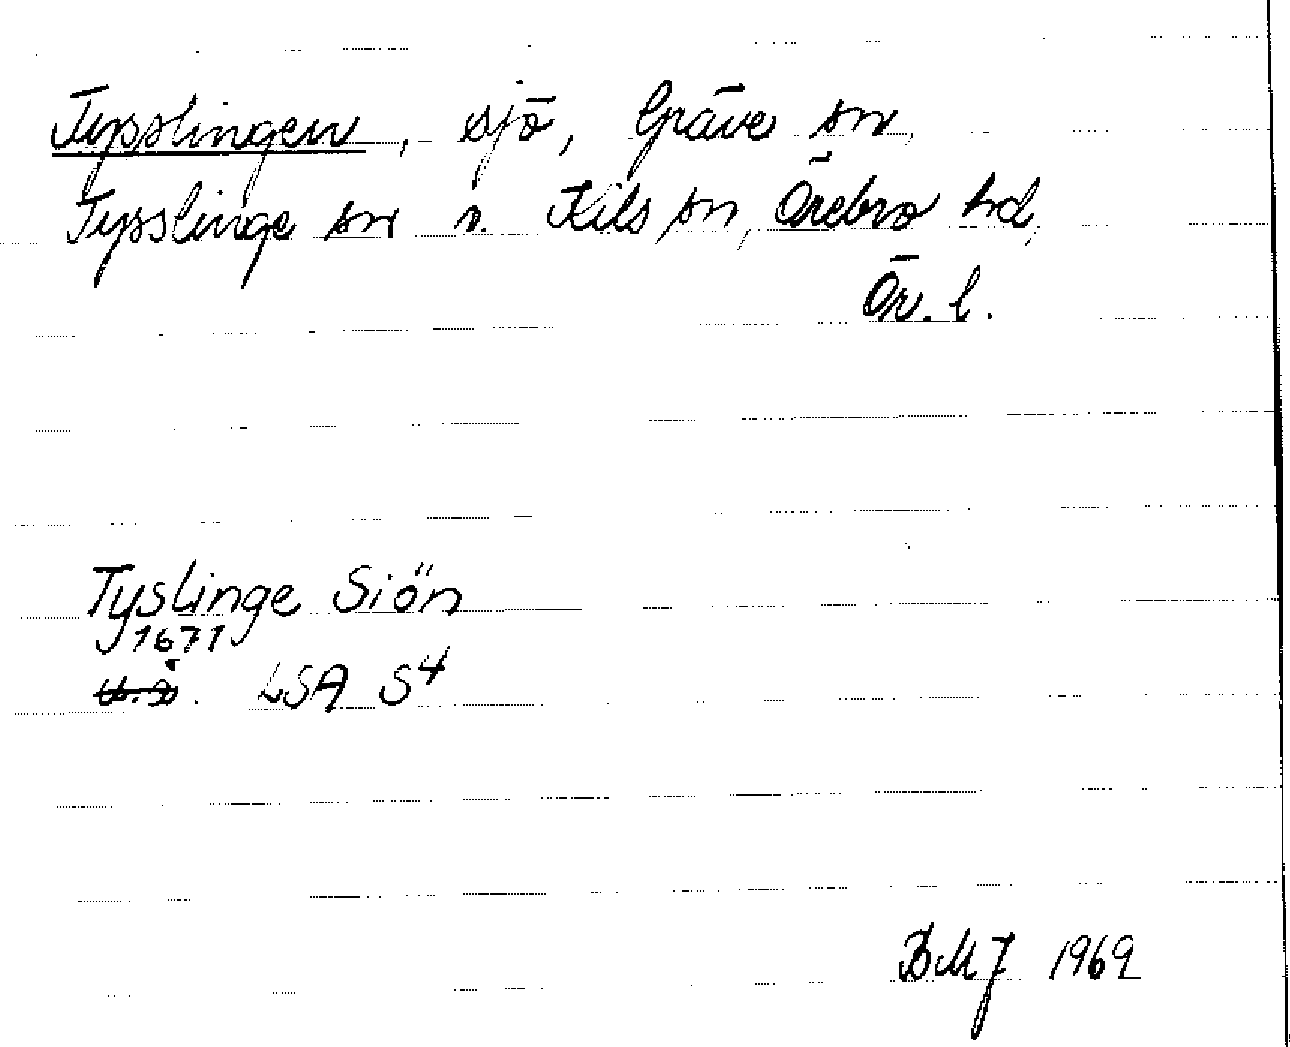 Tysslingen, sjö, Gräve sn,
Tysslinge sn o. Kils sn, Örebro hd,
Ör. l.
Tyslinge Siön
1671
LSA S4
BMJ 1969